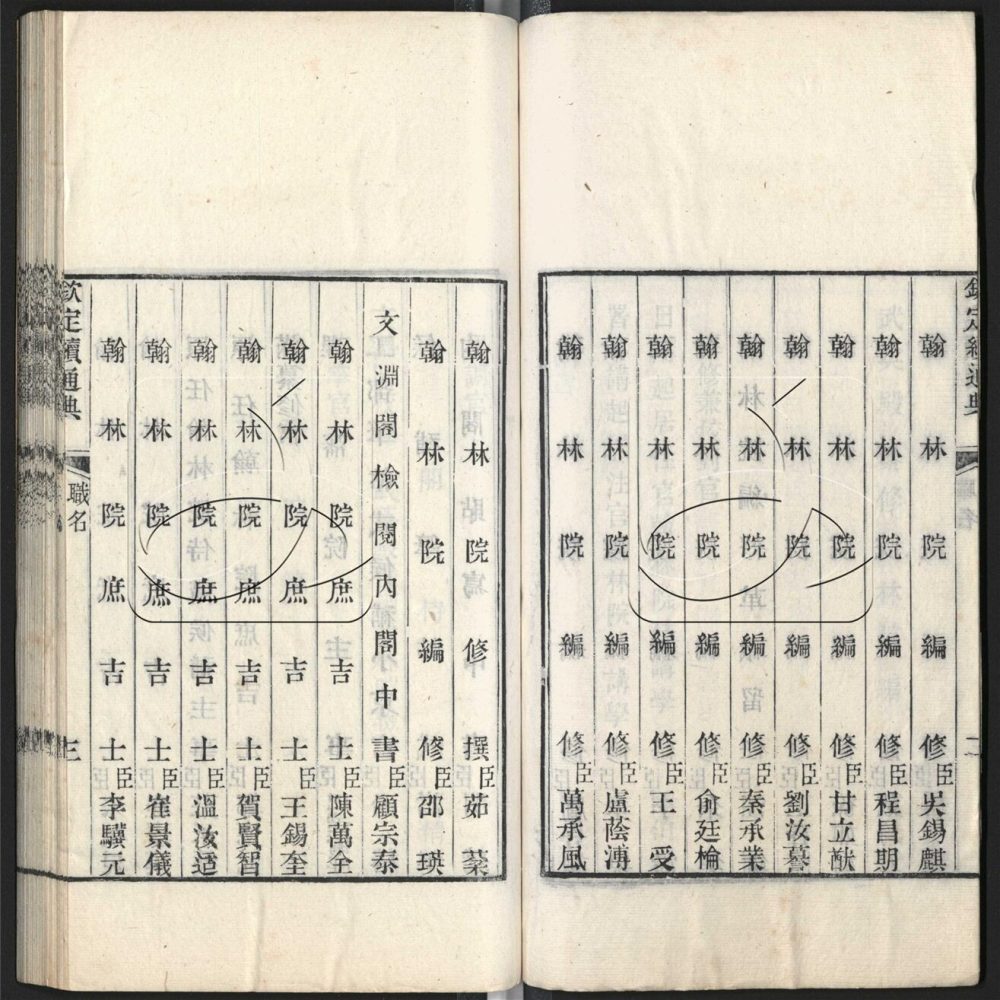 欽定續通典
翰林院編修臣吳錫麒
翰林院編修臣程昌期
翰林院編修臣甘立猷
翰林院編修臣劉汝謩
翰林院編修臣秦承業
翰林院編修臣俞廷棆
翰林院編修臣王受
翰林院編修臣盧蔭溥
翰林院編修臣萬承風
翰林院修撰臣茹棻
翰林院編修臣邵瑛
文淵閣檢閱內閣中書臣顧宗泰
翰林院庶吉士臣陳萬全
翰林院庶吉士臣王錫奎
翰林院庶吉士臣賀賢智
翰林院庶吉士臣溫汝适
翰林院庶吉士臣崔景儀
翰林院庶吉士臣李驥元
欽定續通典 職名 三